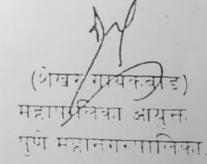 (शेखर गायकवाड)
महापालिका आयुक्त
पुणे महानगरपालिका.